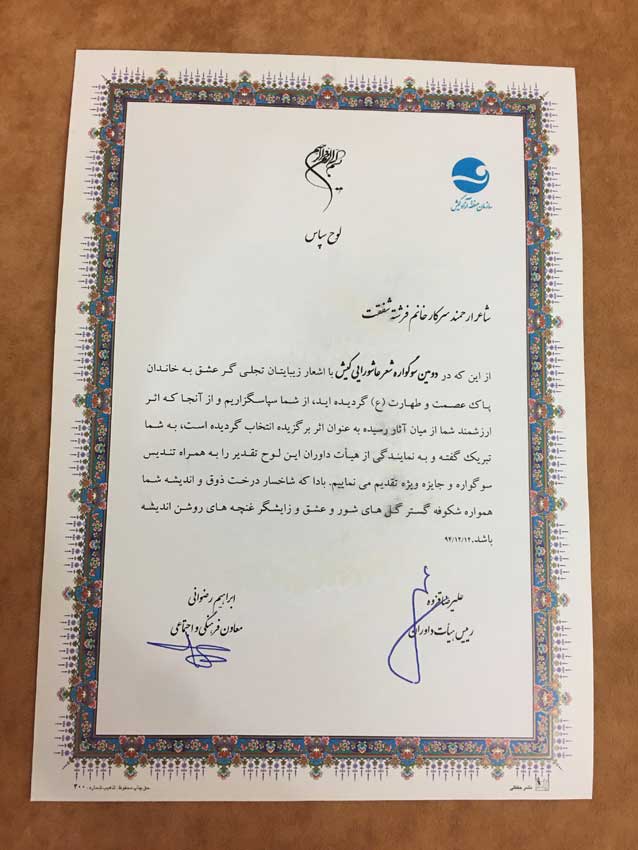 بسم الله الرحمن الرحیم
سازمان منطقه آزاد کیش
لوح سپاس
شاعر ارجمند سرکار خانم فرشته شفقت
از این که در دومین سوگواره شعر عاشورایی کیش با اشعار زیبایتان تجلی گر عشق به خاندان
پاک عصمت و طهارت (ع) گردیده اید، از شما سپاسگزاریم و از آنجا که اثر
ارزشمند شما از میان آثار رسیده به عنوان اثر برگزیده انتخاب گردیده است، به شما
تبریک گفته و به نمایندگی از هیأت داوران این لوح تقدیر را به همراه تندیس
سوگواره و جایزه ویژه تقدیم می نماییم. بادا که شاخسار درخت ذوق و اندیشه شما
همواره شکوفه گستر گل های شور و عشق و زایشگر غنچه های روشن اندیشه
باشد.۹۲/۱۲/۱۲
علیرضا قزوه
رییس هیأت داوران
ابراهیم رضوانی
معاون فرهنگی و اجتماعی
نشر حقانی
حق چاپ محفوظ. تذهیب شماره: ۳۰۰